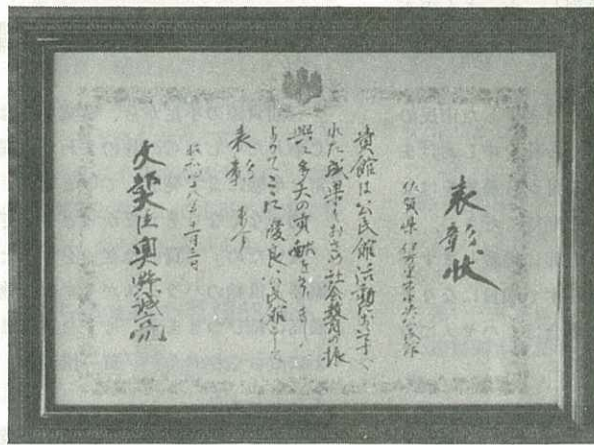 表彰状
佐賀県 伊万里市中央公民館
貴館は公民館活動においてすぐ
れた成果をおさめ社会教育の振
興に多大の貢献をされました
よってここに優良公民館として
表彰します
昭和四十八年十一月三日
文部大臣 奥野誠亮